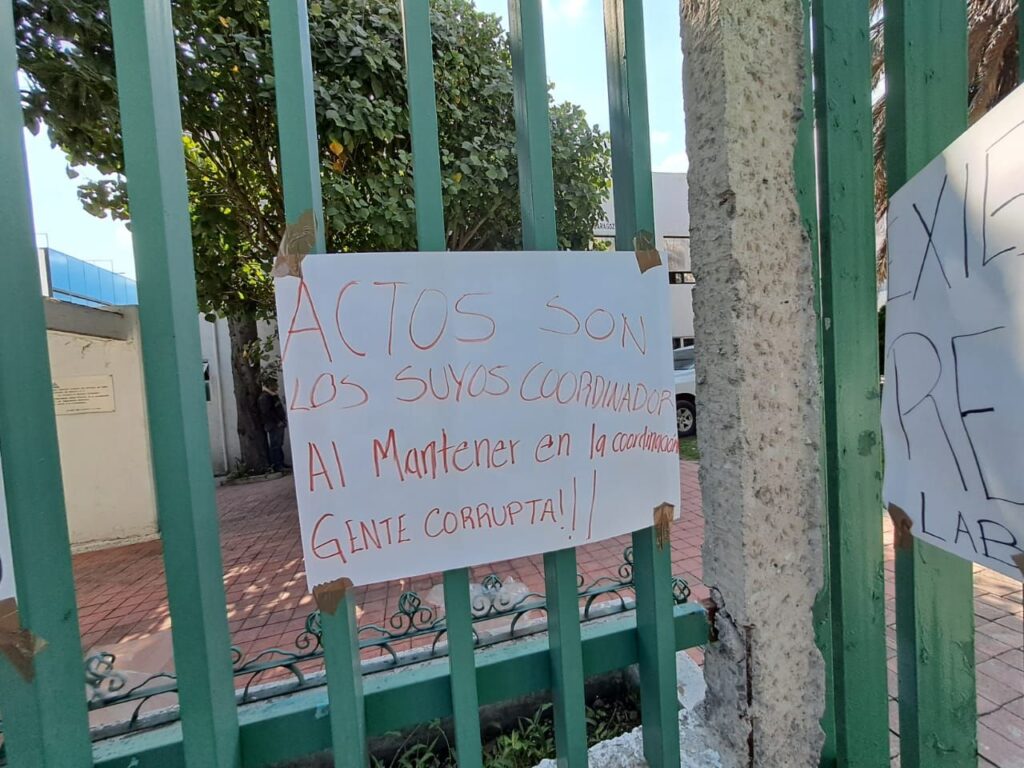 ACTOS SON
LOS SUYOS COORDINADOR
Al Mantener en la coordinación
GENTE CORRUPTA!!//
EXIE
RE
LAB